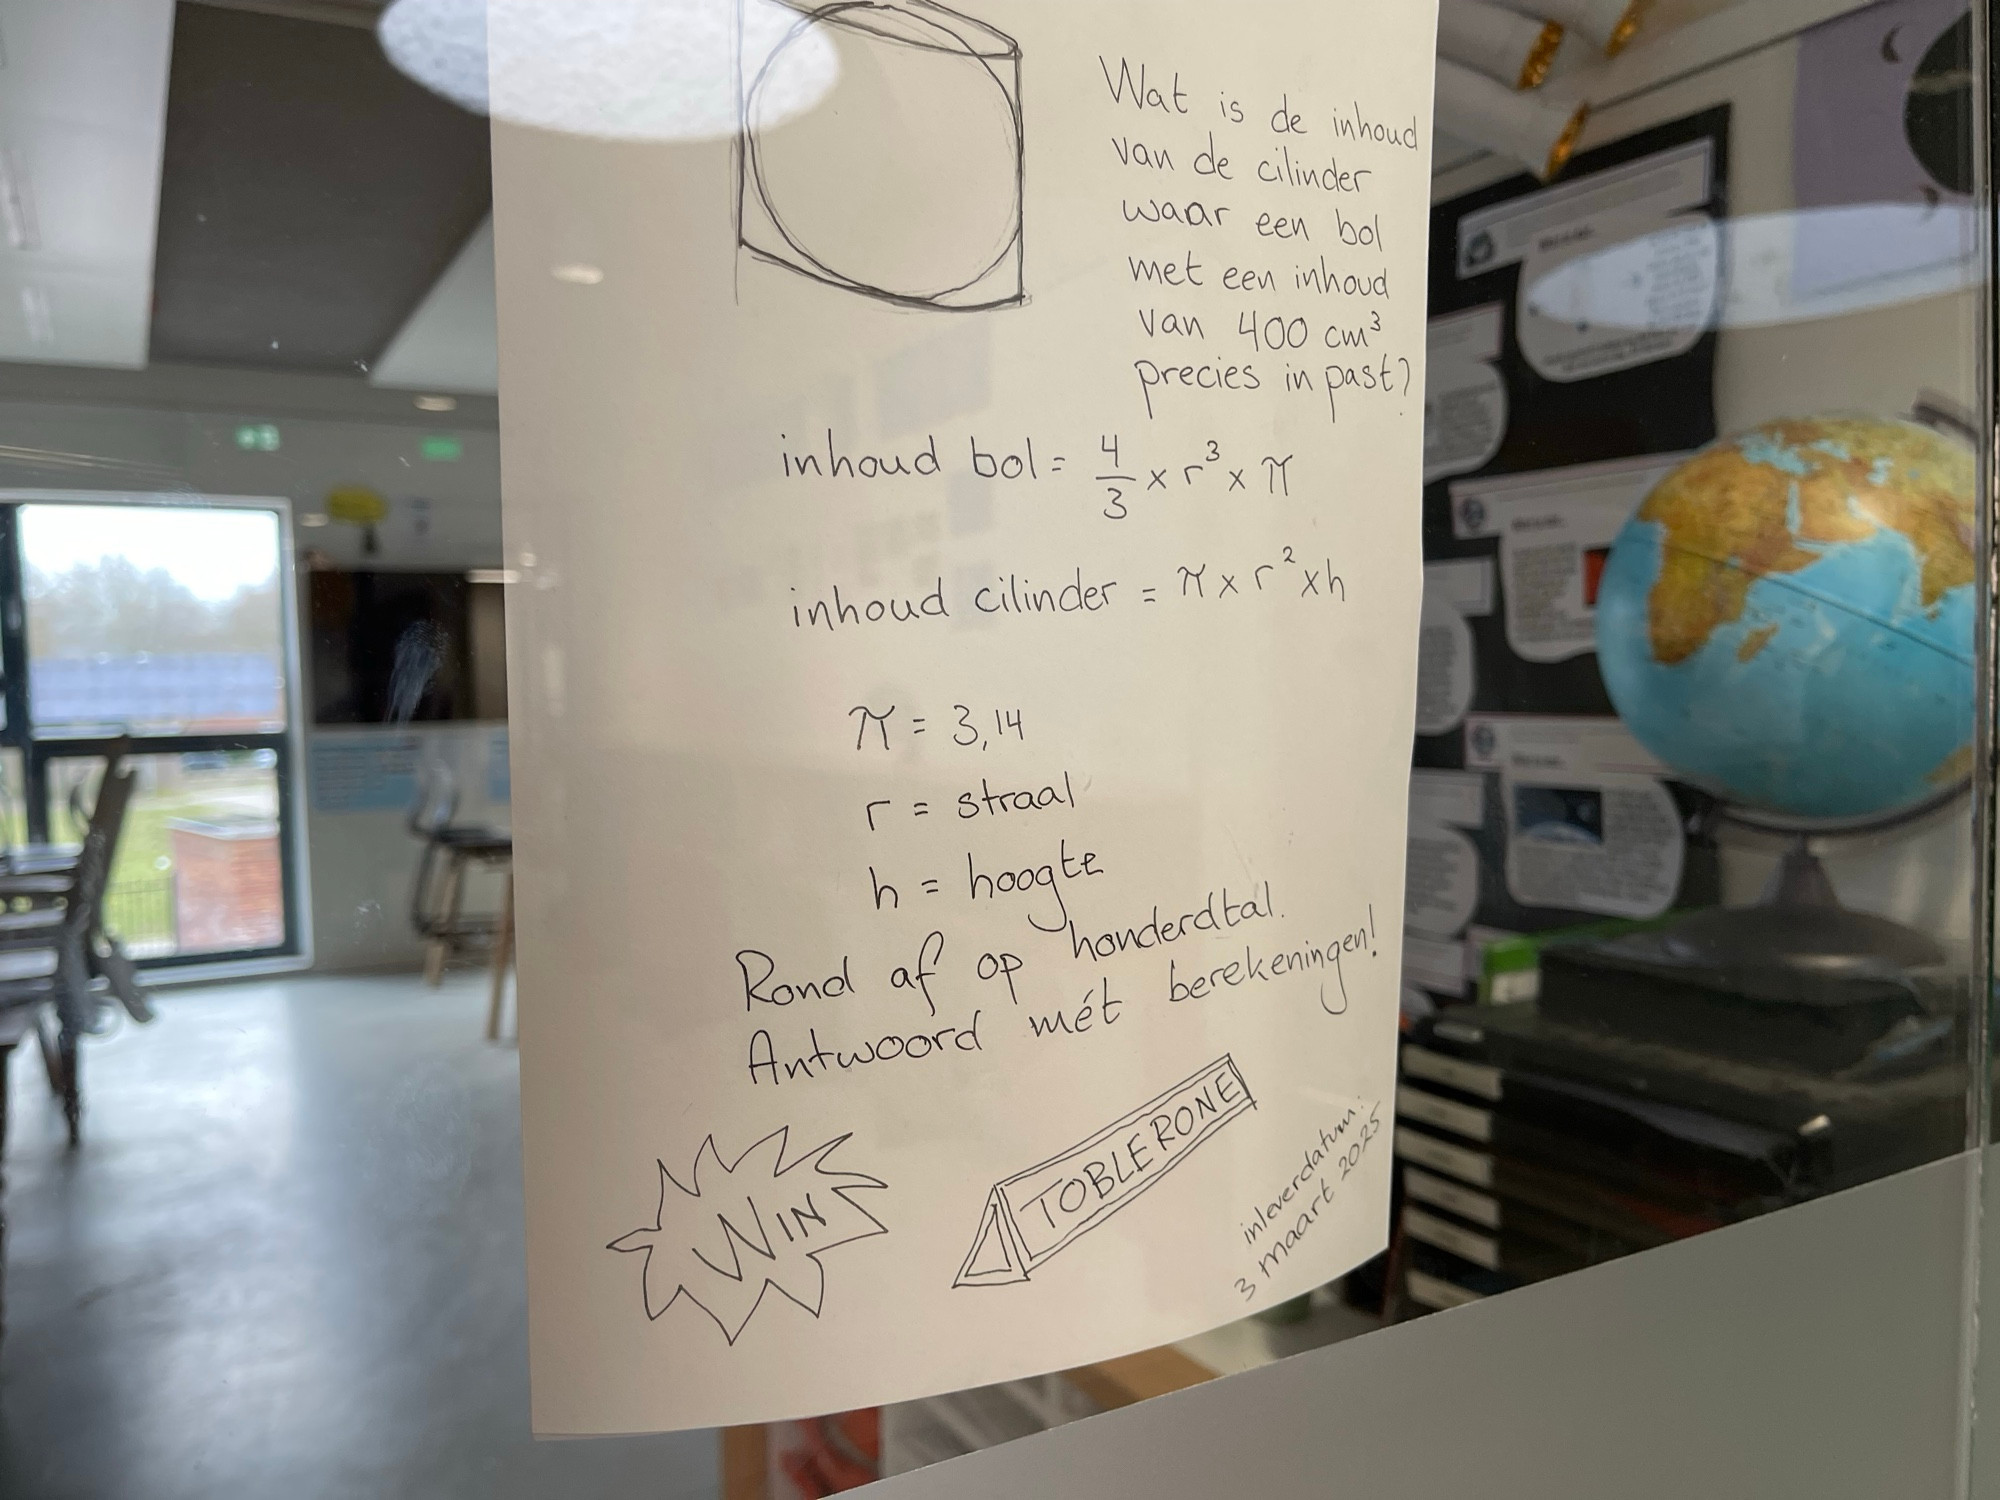 Wat is de inhoud
van de cilinder
waar een bol
met een inhoud
van 400 cm³
precies in past?
inhoud bol = 4/3 × r³ × π
inhoud cilinder = π × r² × h
π = 3,14
r = straal
h = hoogte
Rond af op honderdtal.
Antwoord mét berekeningen!
WIN
TOBLERONE
inleverdatum:
3 maart 2025